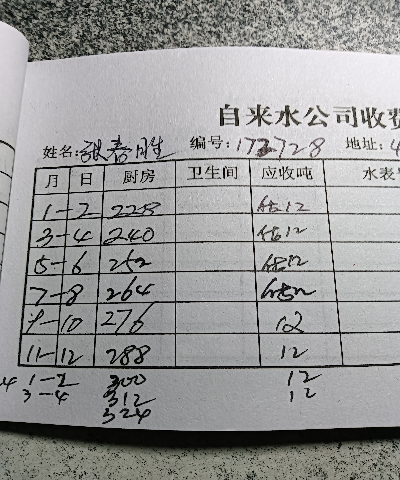 自来水公司收费
姓名:张春胜 编号:172728 地址:4
月 日 厨房 卫生间 应收吨 水表
1-2 228 估12
3-4 240 估12
5-6 252 估12
7-8 264 估12
9-10 276 12
11-12 288 12
1-2 300 12
3-4 312 12
324